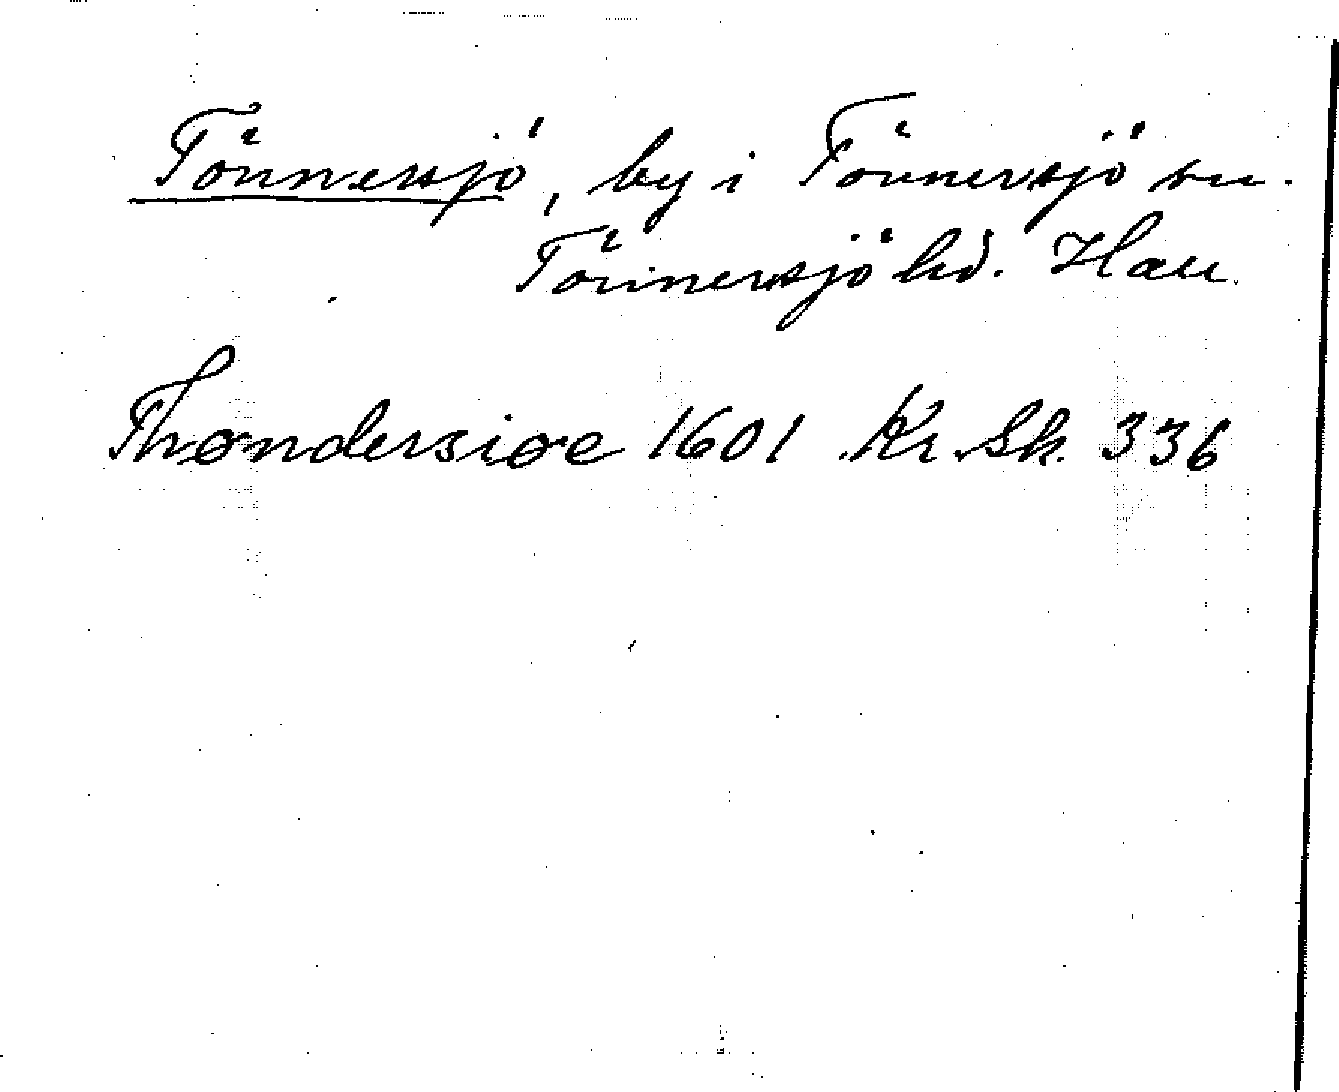 Tönnersjö, by i Tönnersjö sn.
Tönnersjö hd. Hall.
Thøndersiøe 1601 Kr. Sk. 336